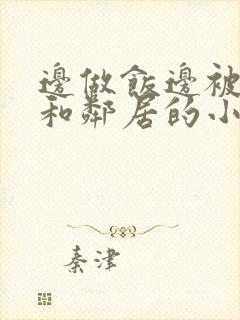 邊做飯邊被
和鄰居的小
秦津